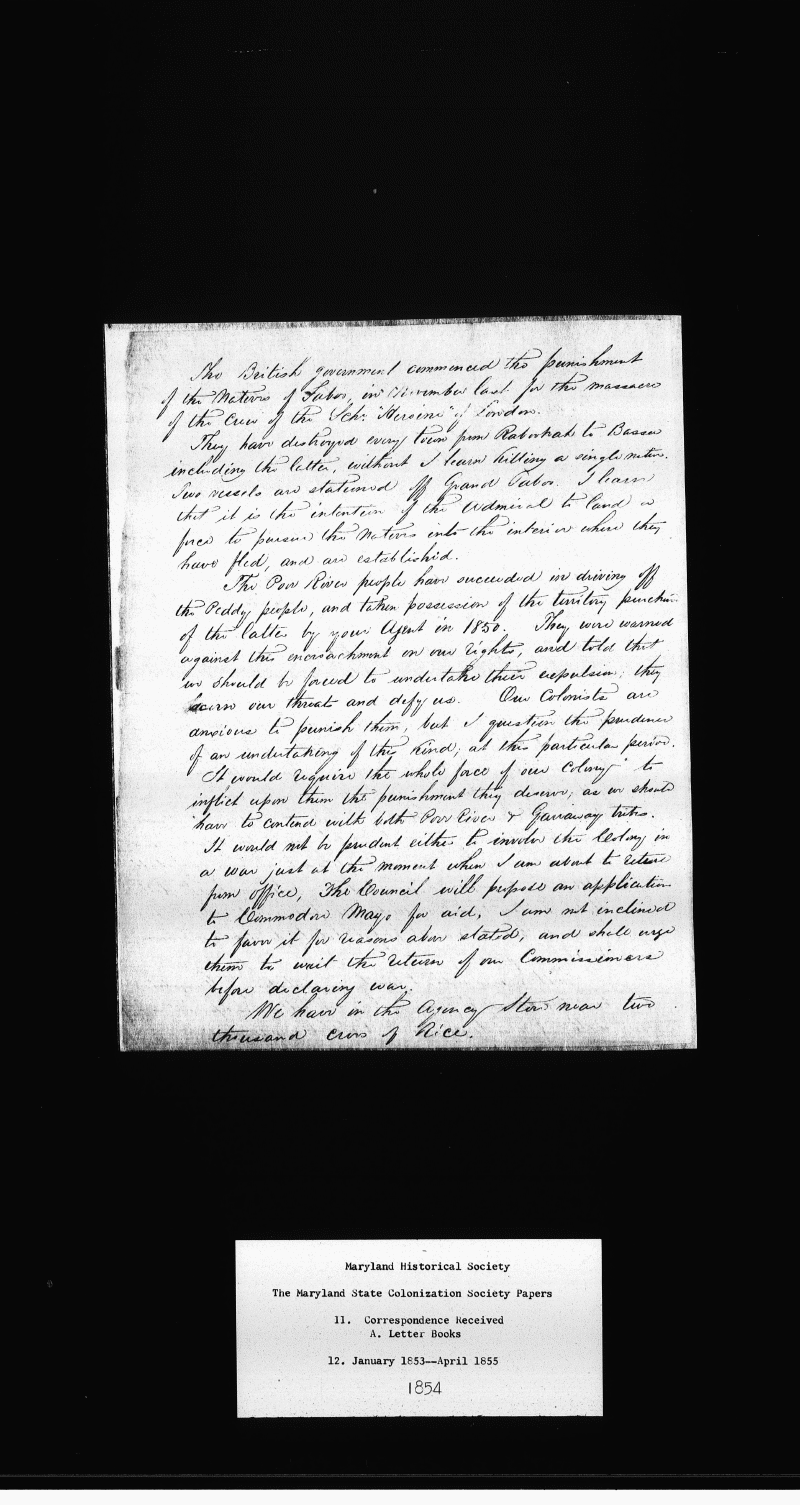 The British government commenced the punishment
of the Natives of Tabor, in November last for the massacre
of the Crew of the Schr. "Heroine" of London.
They have destroyed every town from Rabookah to Bassa
including the latter, without I learn killing a single native.
Two vessels are stationed off Grand Tabor. I learn
that it is the intention of the Admiral to land a
force to pursue the Natives into the interior where they
have fled, and are established.
The Poor River people have succeeded in driving off
the Peddy people, and taken possession of the territory purchased
of the latter by your Agent in 1850. They were warned
against this encroachment on our rights, and told that
we should be forced to undertake their expulsion; they
scorn our threat and defy us. Our Colonists are
anxious to punish them, but I question the prudence
of an undertaking of this kind; at this particular period.
It would require the whole force of our Colony to
inflict upon them the punishment they deserve; as we should
have to contend with both Poor River & Garraway tribes.
It would not be prudent either to involve the Colony in
a war just at the moment when I am about to retire
from office, The Council will propose an application
to Commodore Mayo for aid, I am not inclined
to favor it for reasons above stated, and shall urge
them to wait the return of our Commissioners
before declaring war.
We have in the Agency Store near two
thousand croos of Rice.
Maryland Historical Society
The Maryland State Colonization Society Papers
11. Correspondence Received
A. Letter Books
12. January 1853--April 1855
1854